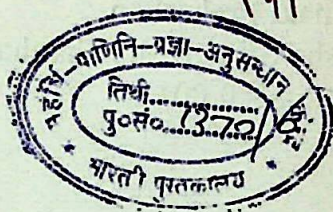 महर्षि-पाणिनि-प्रज्ञा-अनुसन्धान
तिथी..................
पु०सं० 1370
भारती पुस्तकालय